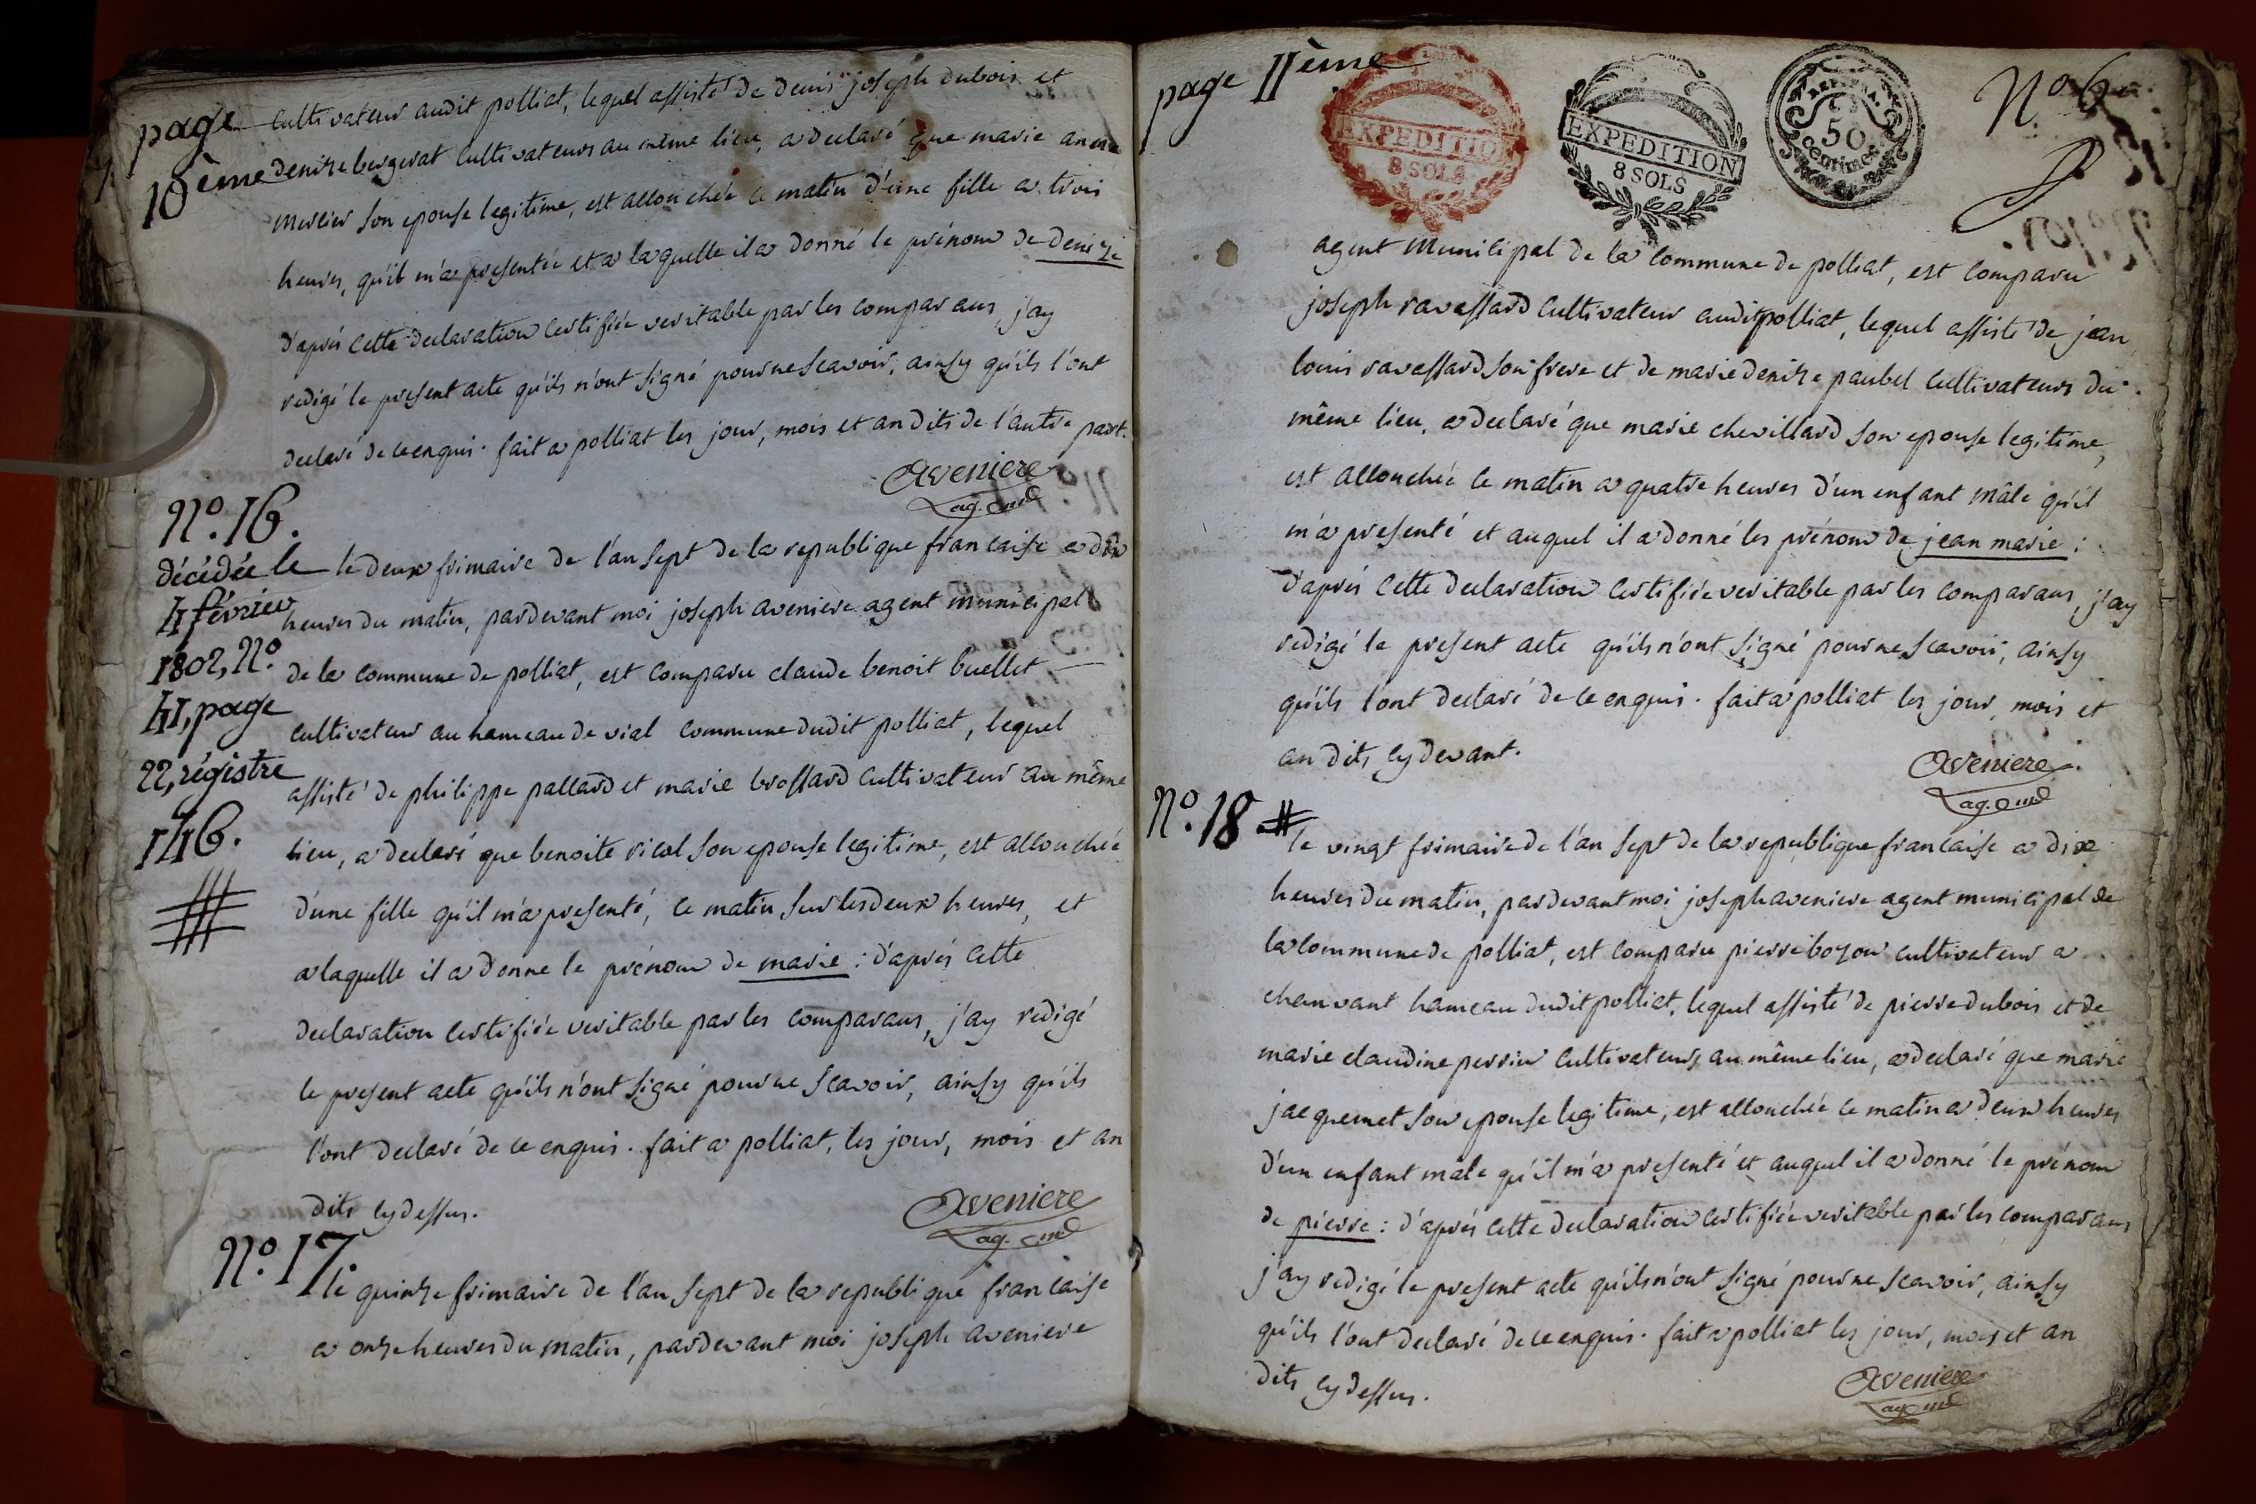 page
10ème
cultivateur audit polliat, lequel assisté de denis joseph dubois et
denize bergerat cultivateurs au même lieu, a declaré que marie anne
merlier son epouse legitime, est accouchée ce matin d'une fille a trois
heures, qu'il m'a presentée et a laquelle il a donné le prénom de denize
d'aprés cette declaration certifiée veritable par les comparans, j'ay
redigé le present acte qu'ils n'ont signé pour ne scavoir, ainsy qu'ils l'ont
declaré de ce enquis. fait a polliat les jour, mois et an dits de l'autre part.
aveniere
ag. md
N°. 16.
décédée le
4 février
1802, N°.
41, page
22, régistre
146.
le deux frimaire de l'an sept de la republique francaise a dix
heures du matin, pardevant moi joseph aveniere agent municipal
de la commune de polliat, est comparu claude benoit buellet
cultivateur au hameau de vial commune dudit polliat, lequel
assisté de philippe pallard et marie brossard cultivateur au même
lieu, a declaré que benoite ricol son epouse legitime, est accouchée
d'une fille qu'il m'a presenté, ce matin sur les deux heures, et
a laquelle il a donne le prénom de marie : d'aprés cette
declaration certifiée veritable par les comparans, j'ay redigé
le present acte qu'ils n'ont signé pour ne scavoir, ainsy qu'ils
l'ont declaré de ce enquis. fait a polliat, les jour, mois et an
dits cy dessus.
aveniere
ag. md
N°. 17.
le quinze frimaire de l'an sept de la republique francaise
a onze heures du matin, pardevant moi joseph aveniere
page 11ème
EXPEDITION
8 SOLS
EXPEDITION
8 SOLS
50
centimes
N° 6
agent municipal de la commune de polliat, est comparu
joseph ravassard cultivateur audit polliat, lequel assisté de jean
louis ravassard son frere et de marie denize paubel cultivateurs du
même lieu, a declaré que marie chevillard son epouse legitime,
est accouchée ce matin a quatre heures d'un enfant mâle qu'il
m'a presenté et auquel il a donné les prénom de jean marie :
d'aprés cette declaration certifiée veritable par les comparans, j'ay
redigé le present acte qu'ils n'ont signé pour ne scavoir, ainsy
qu'ils l'ont declaré de ce enquis. fait a polliat les jour, mois et
an dits cy devant.
aveniere
ag. md
N°. 18
le vingt frimaire de l'an sept de la republique francaise a dix
heures du matin, pardevant moi joseph aveniere agent municipal de
la commune de polliat, est comparu pierre bozon cultivateur a
chanvant hameau dudit polliat, lequel assisté de pierre dubois et de
marie claudine perrin cultivateurs au même lieu, a declaré que marie
jacquemet son epouse legitime, est accouchée ce matin a deux heures
d'un enfant mâle qu'il m'a presenté et auquel il a donné le prénom
de pierre : d'aprés cette declaration certifiée veritable par les comparans
j'ay redigé le present acte qu'ils n'ont signé pour ne scavoir, ainsy
qu'ils l'ont declaré de ce enquis. fait a polliat les jour, mois et an
dits cy dessus.
aveniere
ag. md